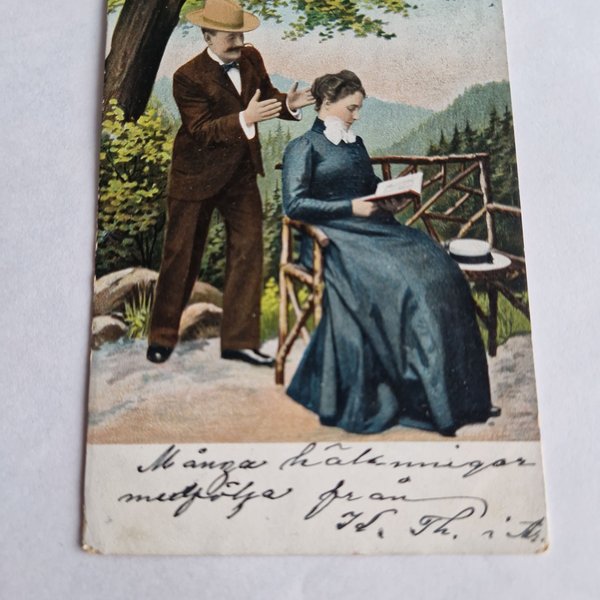 Många hälsningar
medfölja från
K. Th. i